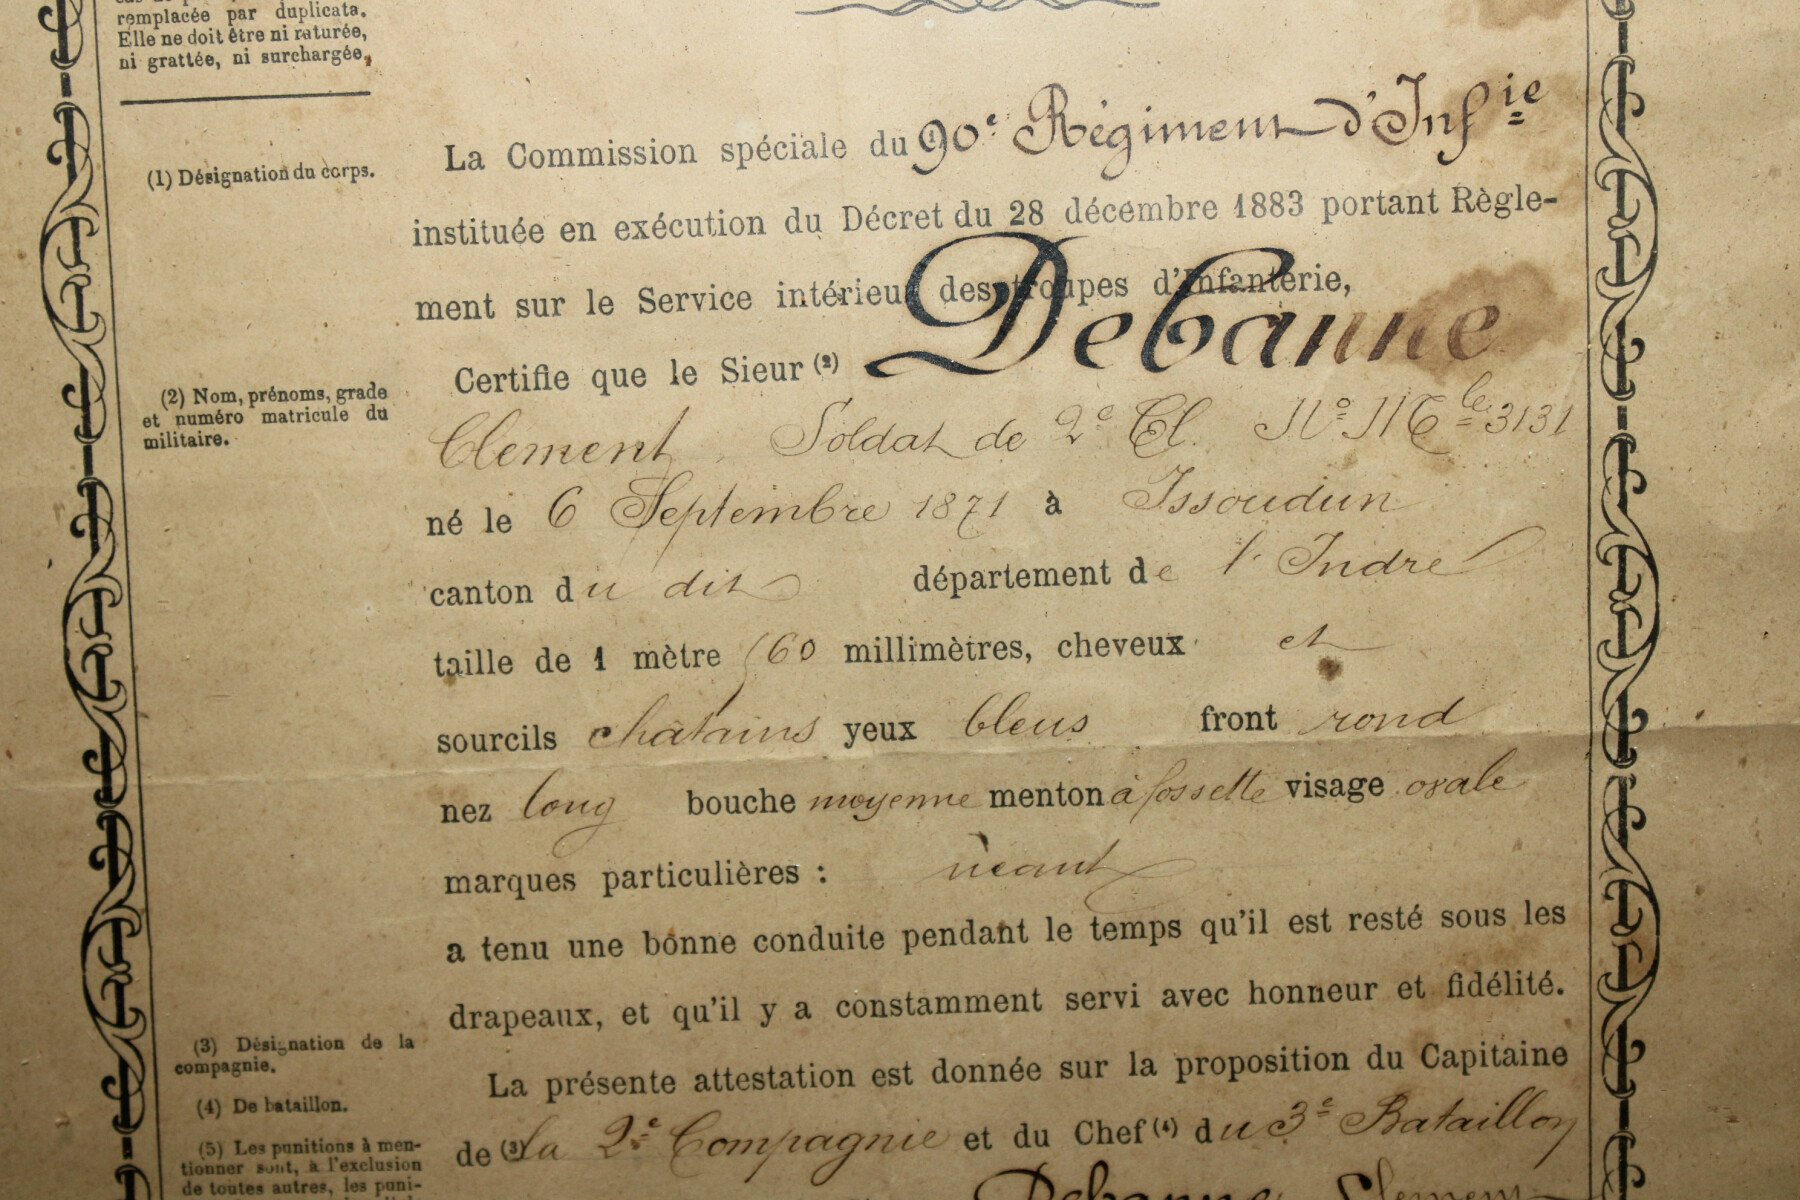 remplacée par duplicata.
Elle ne doit être ni raturée,
ni grattée, ni surchargée,
La Commission spéciale du 90e Régiment d'Infie
(1) Désignation du corps.
instituée en exécution du Décret du 28 décembre 1883 portant Règle-
ment sur le Service intérieur des troupes d'Infanterie,
Certifie que le Sieur (2) Debanne
(2) Nom, prénoms, grade
et numéro matricule du
militaire.
Clement Soldat de 2e Cl. No Mle 3131
né le 6 Septembre 1871 à Issoudun
canton du dit département de l'Indre
taille de 1 mètre 660 millimètres, cheveux et
sourcils chatains yeux bleus front rond
nez long bouche moyenne menton à fossette visage ovale
marques particulières : néant
a tenu une bonne conduite pendant le temps qu'il est resté sous les
drapeaux, et qu'il y a constamment servi avec honneur et fidélité.
(3) Désignation de la
compagnie.
La présente attestation est donnée sur la proposition du Capitaine
(4) De bataillon.
de (3) la 2e Compagnie et du Chef (4) du 3e Bataillon
(5) Les punitions à men-
tionner sont, à l'exclusion
de toutes autres, les puni-
Debanne Clement